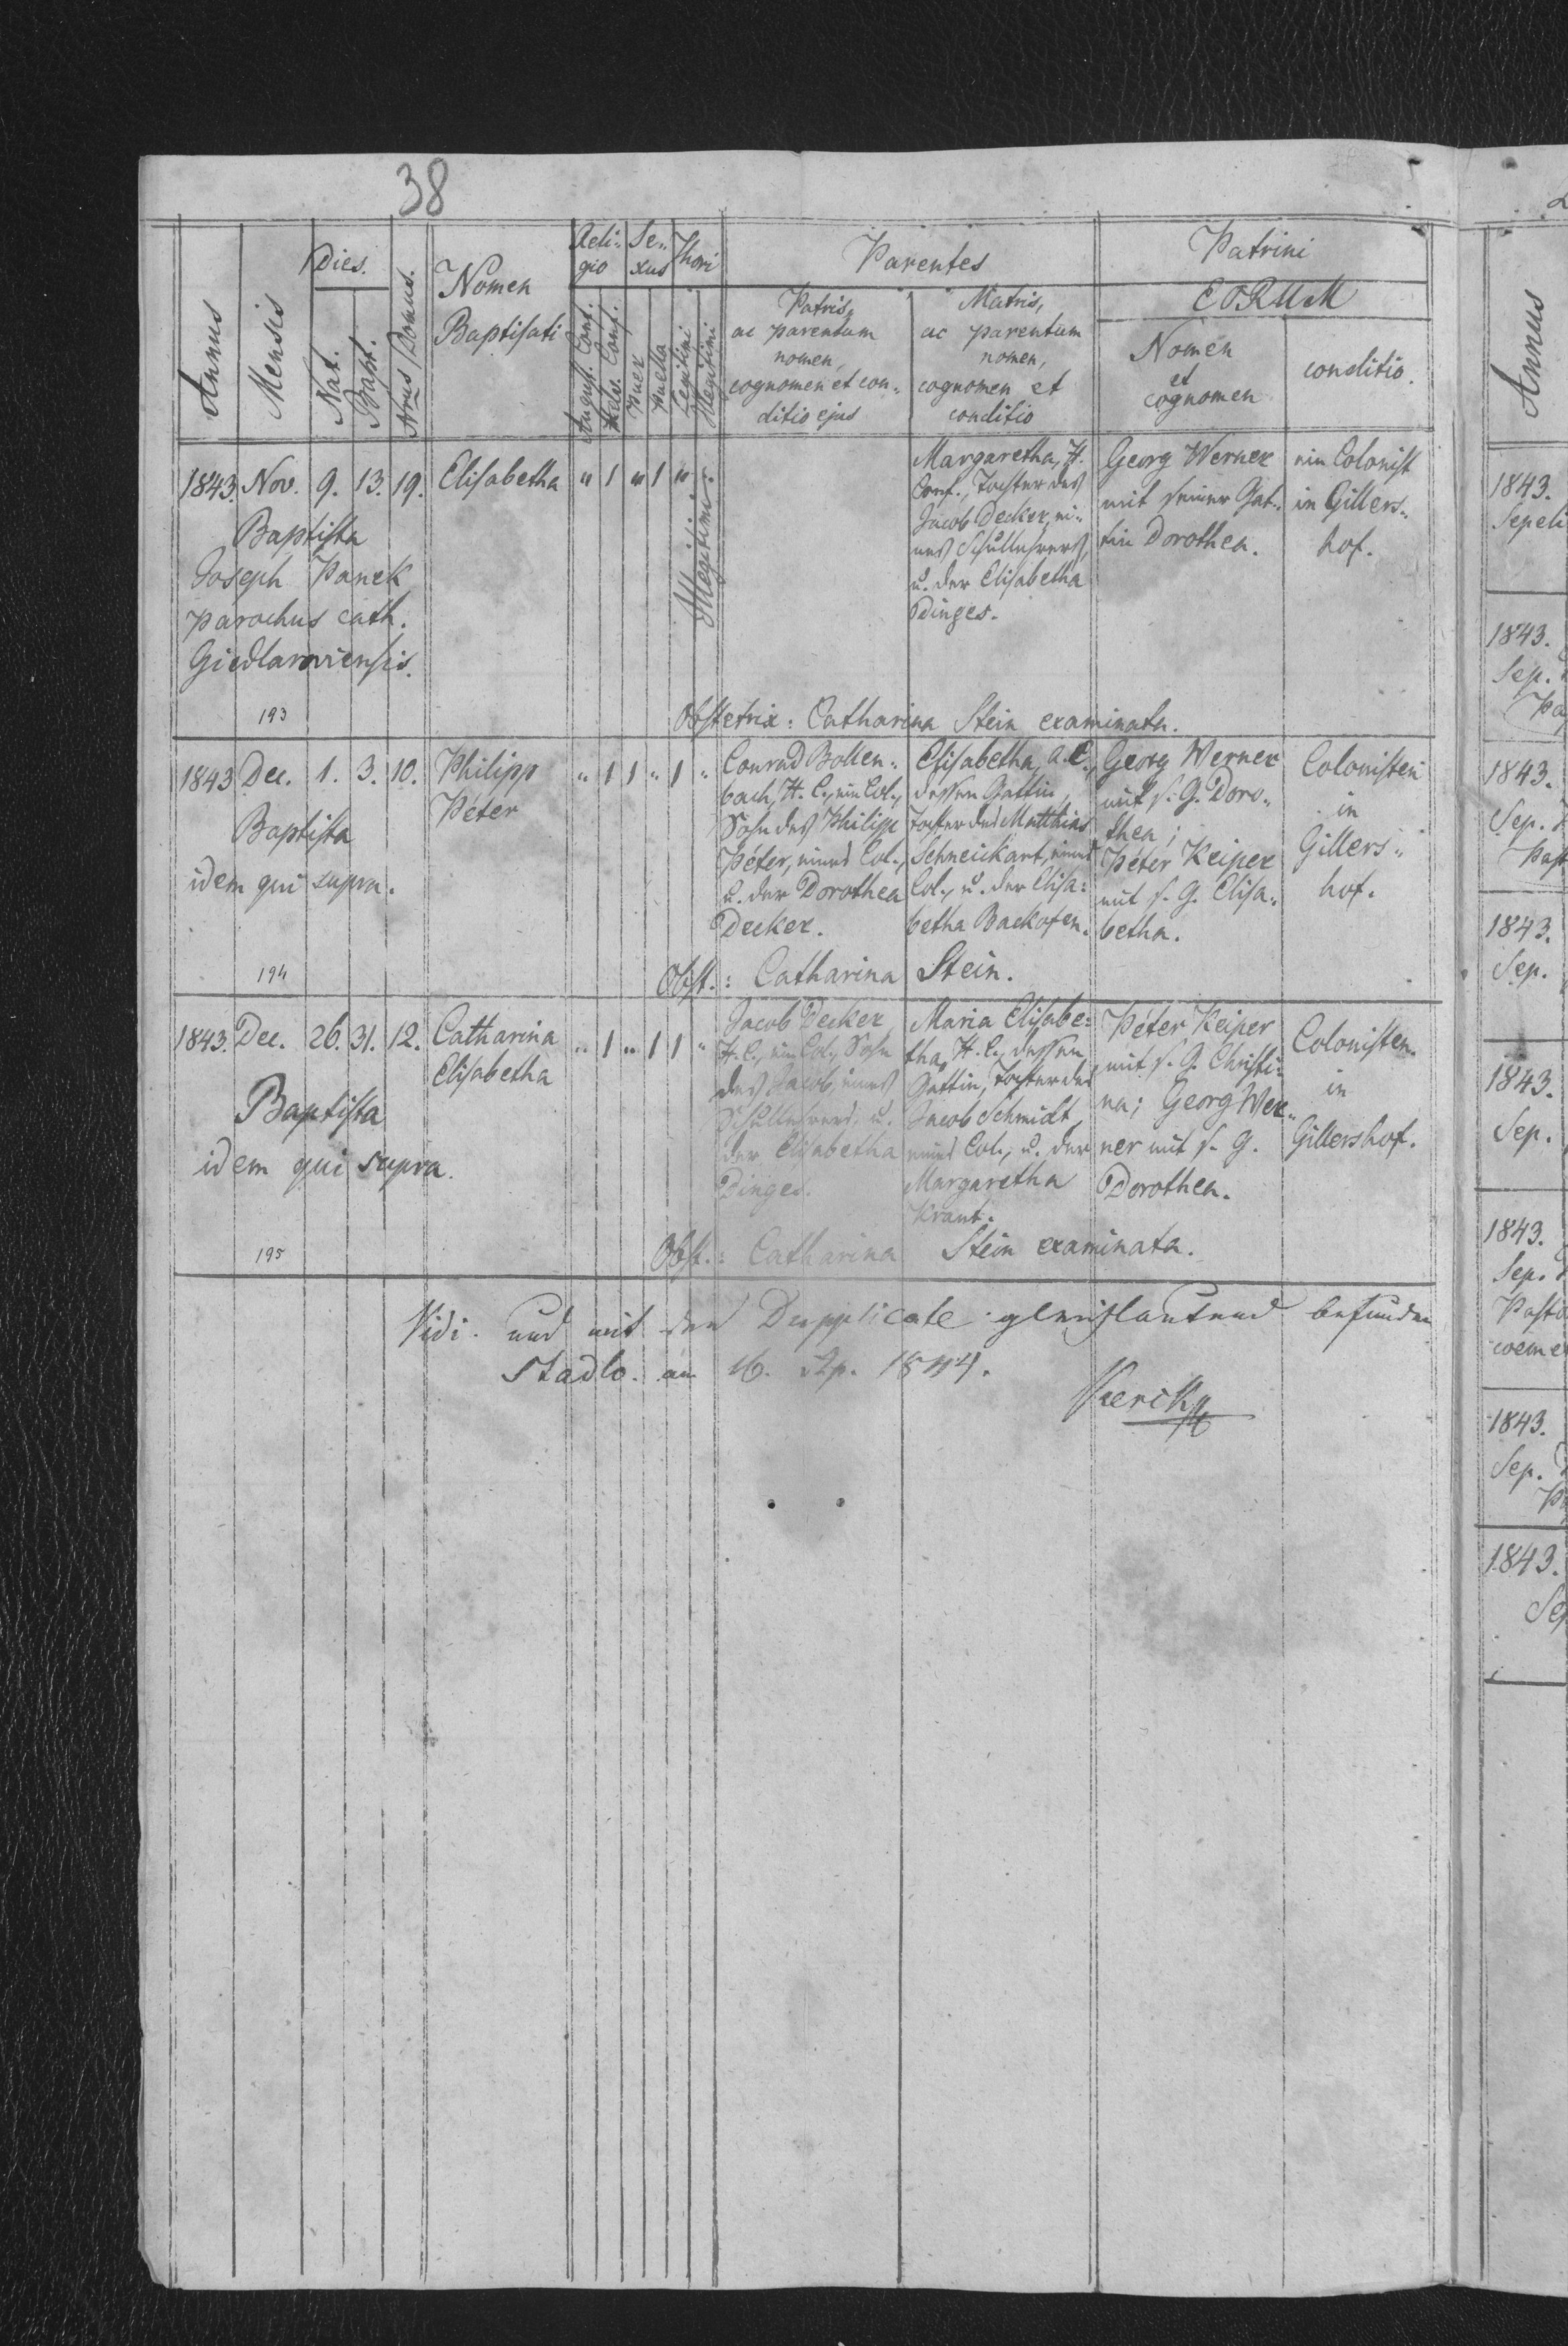 38
Annus
Mensis
Dies.
Nat.
Bapt.
Nrus Domus.
Nomen
Baptisati
Reli-
gio
August. Conf.
Helv. Conf.
Se-
xus
puer
puella
Thori
Legitimi
Illegitimi
Parentes
Patris,
ac parentum
nomen,
cognomen et con-
ditio ejus
Matris,
ac parentum
nomen,
cognomen et
conditio
Patrini
EORUM
Nomen
et
cognomen
conditio.
1843. Nov. 9. 13. 19. Elisabetha " 1 " 1 "
Illegitimi.
Baptista
Joseph Panek
parochus cath.
Giedlaroviensis.
Margaretha, H.
Conf., Tochter des
Jacob Decker, ei-
nes Schullehrers,
u. der Elisabetha
Dinges.
Georg Werner
mit seiner Gat-
tin Dorothea.
ein Colonist
in Gillers-
hof.
193
Obstetrix: Catharina Stein examinata.
1843 Dec. 1. 3. 10. Philipp
Péter
" 1 1 " 1 "
Baptista
idem qui supra.
Conrad Bollen-
bach, H. C., ein Col.,
Sohn des Philipp
Péter, eines Col.,
u. der Dorothea
Decker.
Elisabetha, A. C.,
dessen Gattin,
Tochter des Matthias
Schneickart, eines
Col., u. der Elisa-
betha Backofen.
Georg Werner
mit s. G. Doro-
thea;
Péter Keiper
mit s. G. Elisa-
betha.
Colonisten
in
Gillers-
hof.
194
Obst.: Catharina Stein.
1843. Dec. 26. 31. 12. Catharina
Elisabetha
" 1 " 1 1 "
Baptista
idem qui supra.
Jacob Decker
H. C., ein Col., Sohn
des Jacob, eines
Schullehrers, u.
der Elisabetha
Dinges.
Maria Elisabe-
tha, H. C., dessen
Gattin, Tochter des
Jacob Schmidt,
eines Col., u. der
Margaretha
Kraut.
Péter Keiper
mit s. G. Christi-
na; Georg Wer-
ner mit s. G.
Dorothea.
Colonisten
in
Gillershof.
195
Obst.: Catharina Stein examinata.
Vidi. und mit den Dupplicate gleichlautend befunden
Stadlo. am 16.
Annus
1843.
1843.
Sep.
1843.
Sep.
1843.
Sep.
1843.
Sep.
1843.
Sep.
1843.
Sep.
1843.